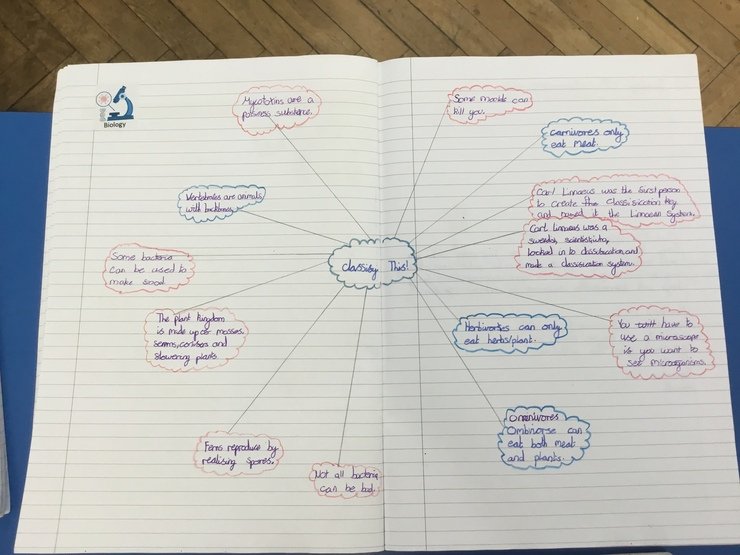 Biology
Mycotoxins are a
poisness substance.
Some moulds can
kill you.
Carnivores only
eat meat.
Vertebrates are animals
with backbones.
Carl Linnaeus was the first person
to create the classification key
and named it the Linnaean System.
Carl Linnaeus was a
scientist, who
looked in to classification, and
made a classification system.
Classify This!
Some bacteria
can be used to
make food.
The plant Kingdom
is made up of mosses,
ferns, conifers and
flowering plants.
Herbivories can only
eat herbs/plant.
You have to
use a microscope
if you want to
see microorganisms.
Omnivores
Ombivorse can
eat both meat
and plants.
Ferns reproduce by
realising spores.
Not all bacteria
can be bad.